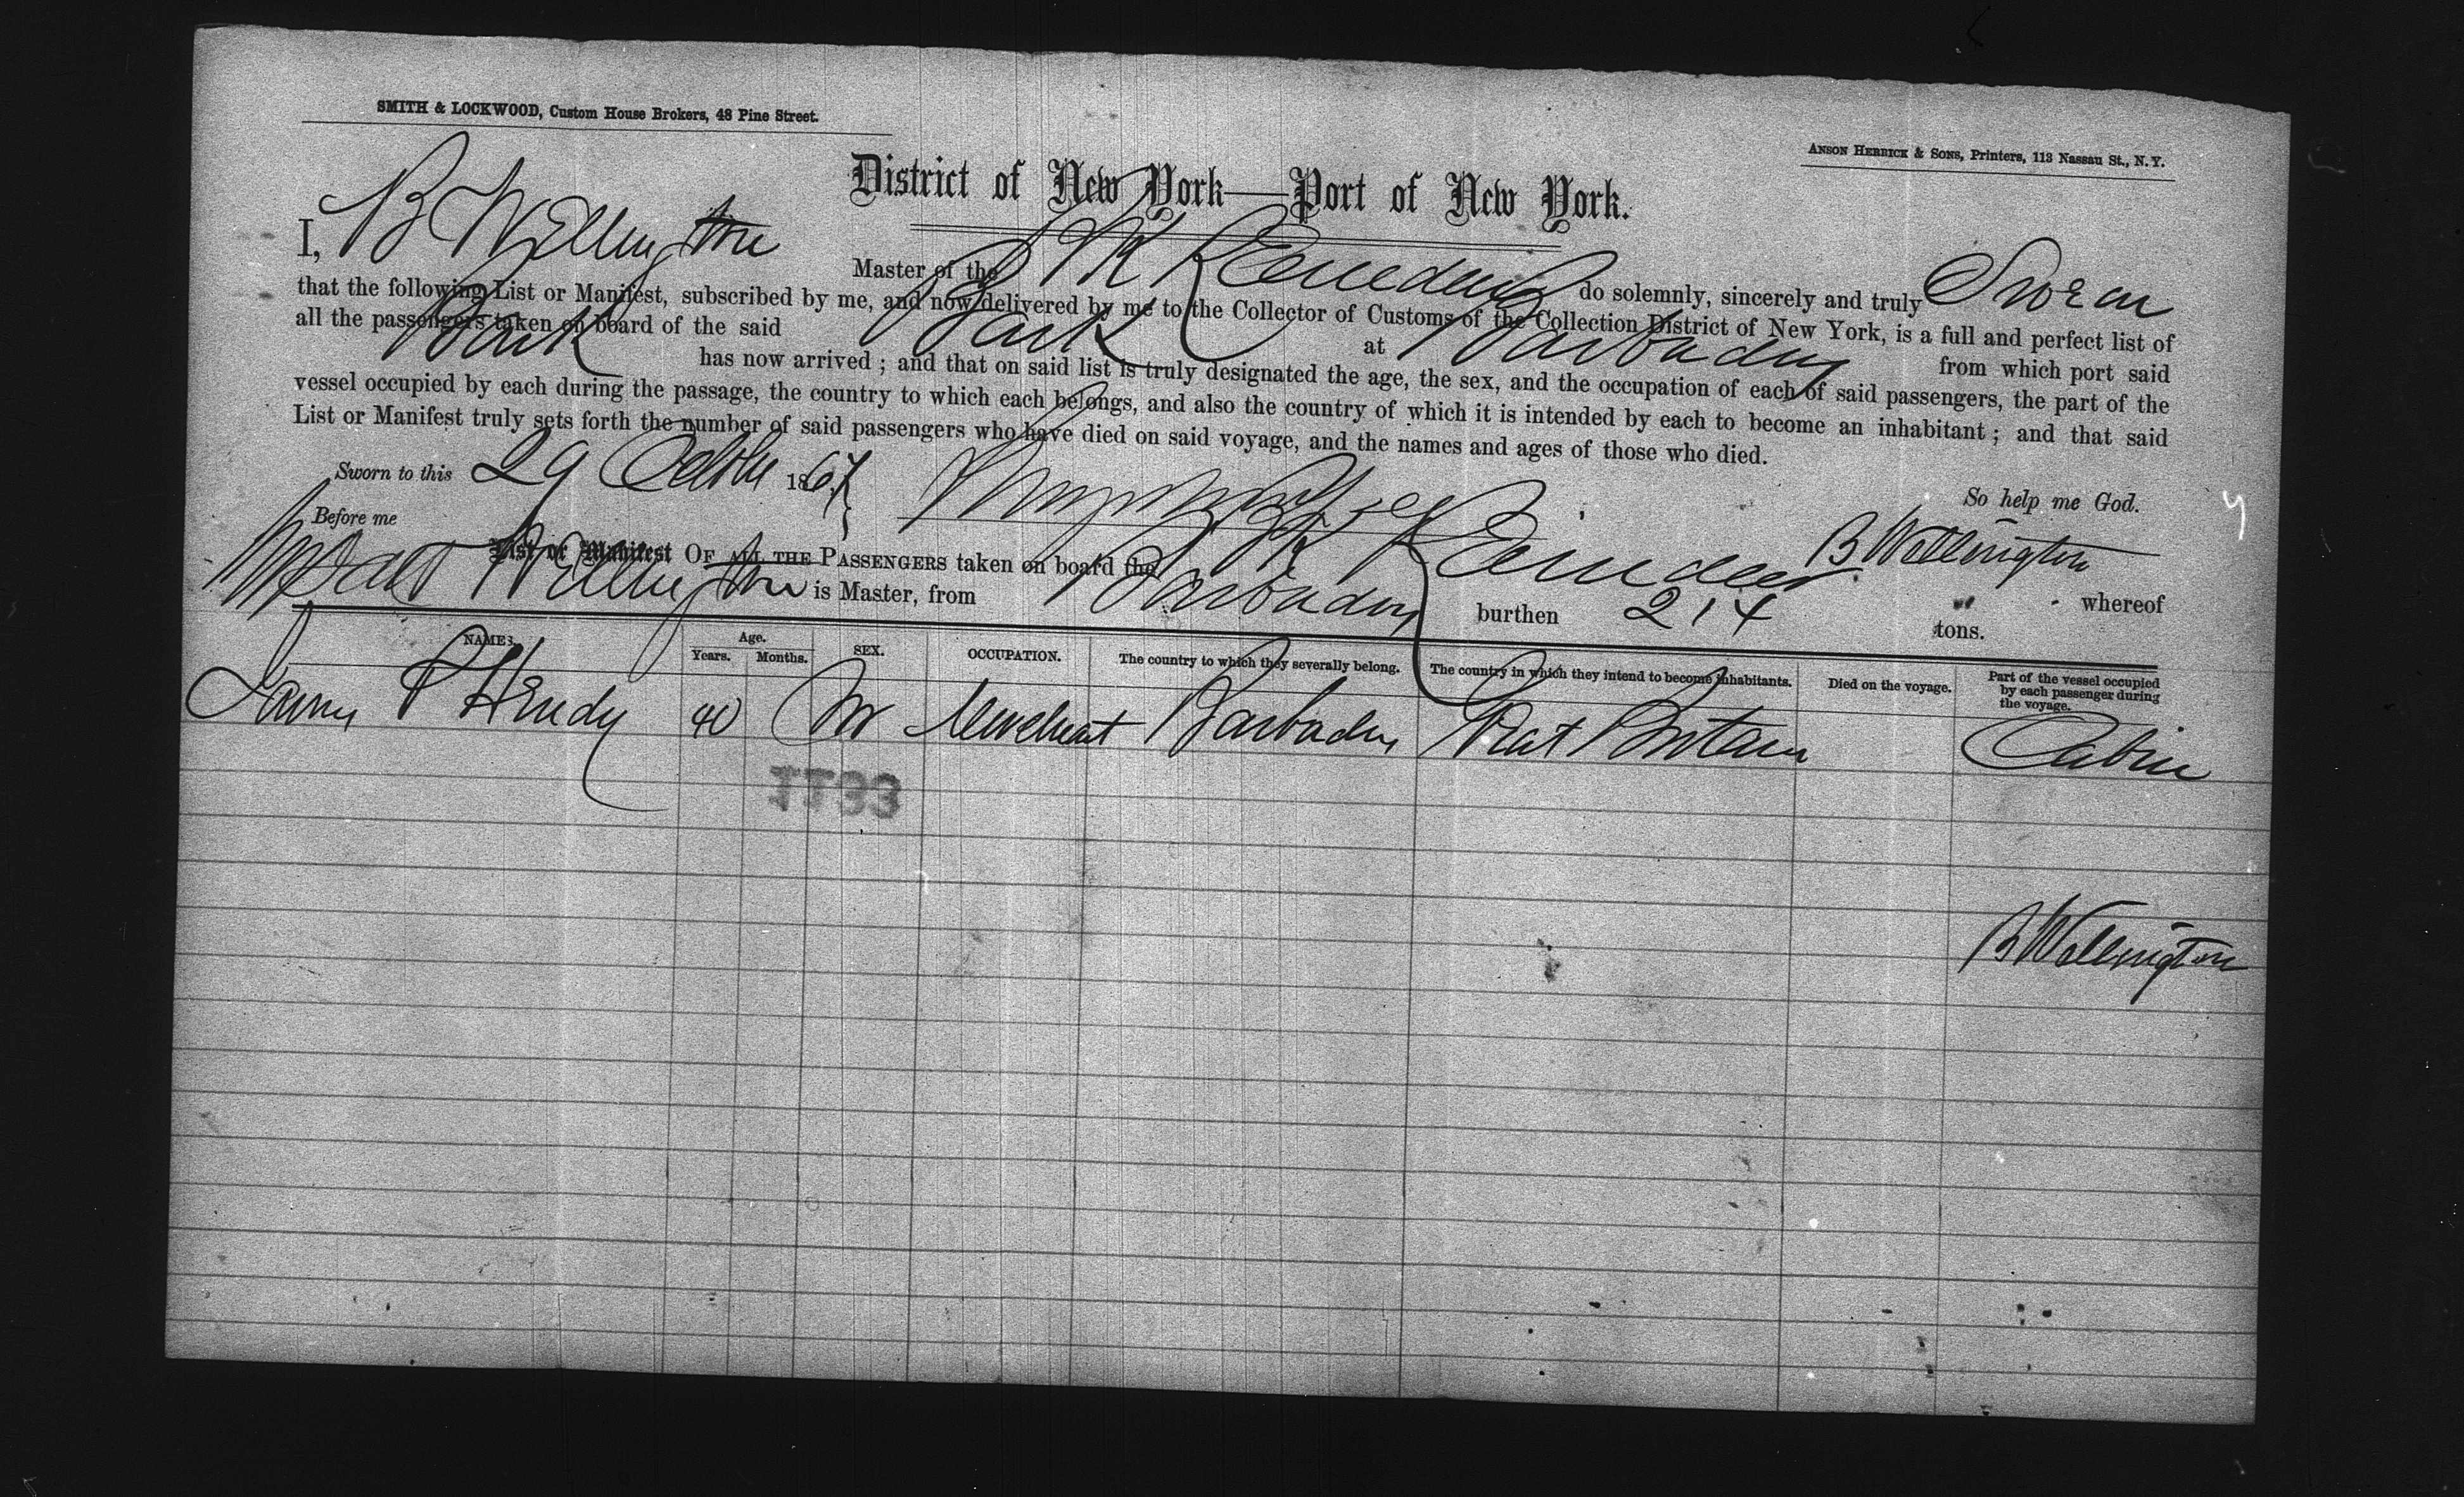 SMITH & LOCKWOOD, Custom House Brokers, 48 Pine Street.
ANSON HERRICK & SONS, Printers, 113 Nassau St., N.Y.
District of New York—Port of New York.
I, B Wellington Master of the do solemnly, sincerely and truly Swear
that the following List or Manifest, subscribed by me, and now delivered by me to the Collector of Customs of the Collection District of New York, is a full and perfect list of
all the passengers taken on board of the said Bark at Barbados from which port said
Bark has now arrived; and that on said list is truly designated the age, the sex, and the occupation of each of said passengers, the part of the
vessel occupied by each during the passage, the country to which each belongs, and also the country of which it is intended by each to become an inhabitant; and that said
List or Manifest truly sets forth the number of said passengers who have died on said voyage, and the names and ages of those who died.
Sworn to this 29 1867 So help me God.
Before me B Wellington
List or Manifest OF ALL THE PASSENGERS taken on board the Reindeer whereof
Wellington is Master, from Barbados burthen 214 tons.
NAMES. Age. Years. Months. SEX. OCCUPATION. The country to which they severally belong. The country in which they intend to become inhabitants. Died on the voyage. Part of the vessel occupied by each passenger during the voyage.
Hendy 40 M Merchant Barbados Great Britain Cabin
1133
B Wellington